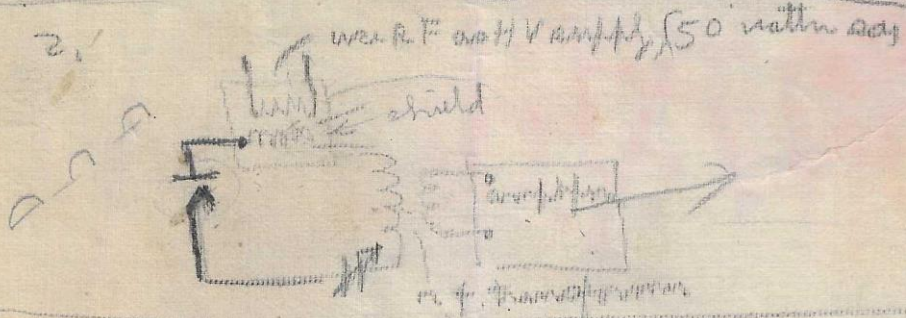 2. use R.F. or H V supply, (50 watts say
shield
amplifier
r. f. transformer